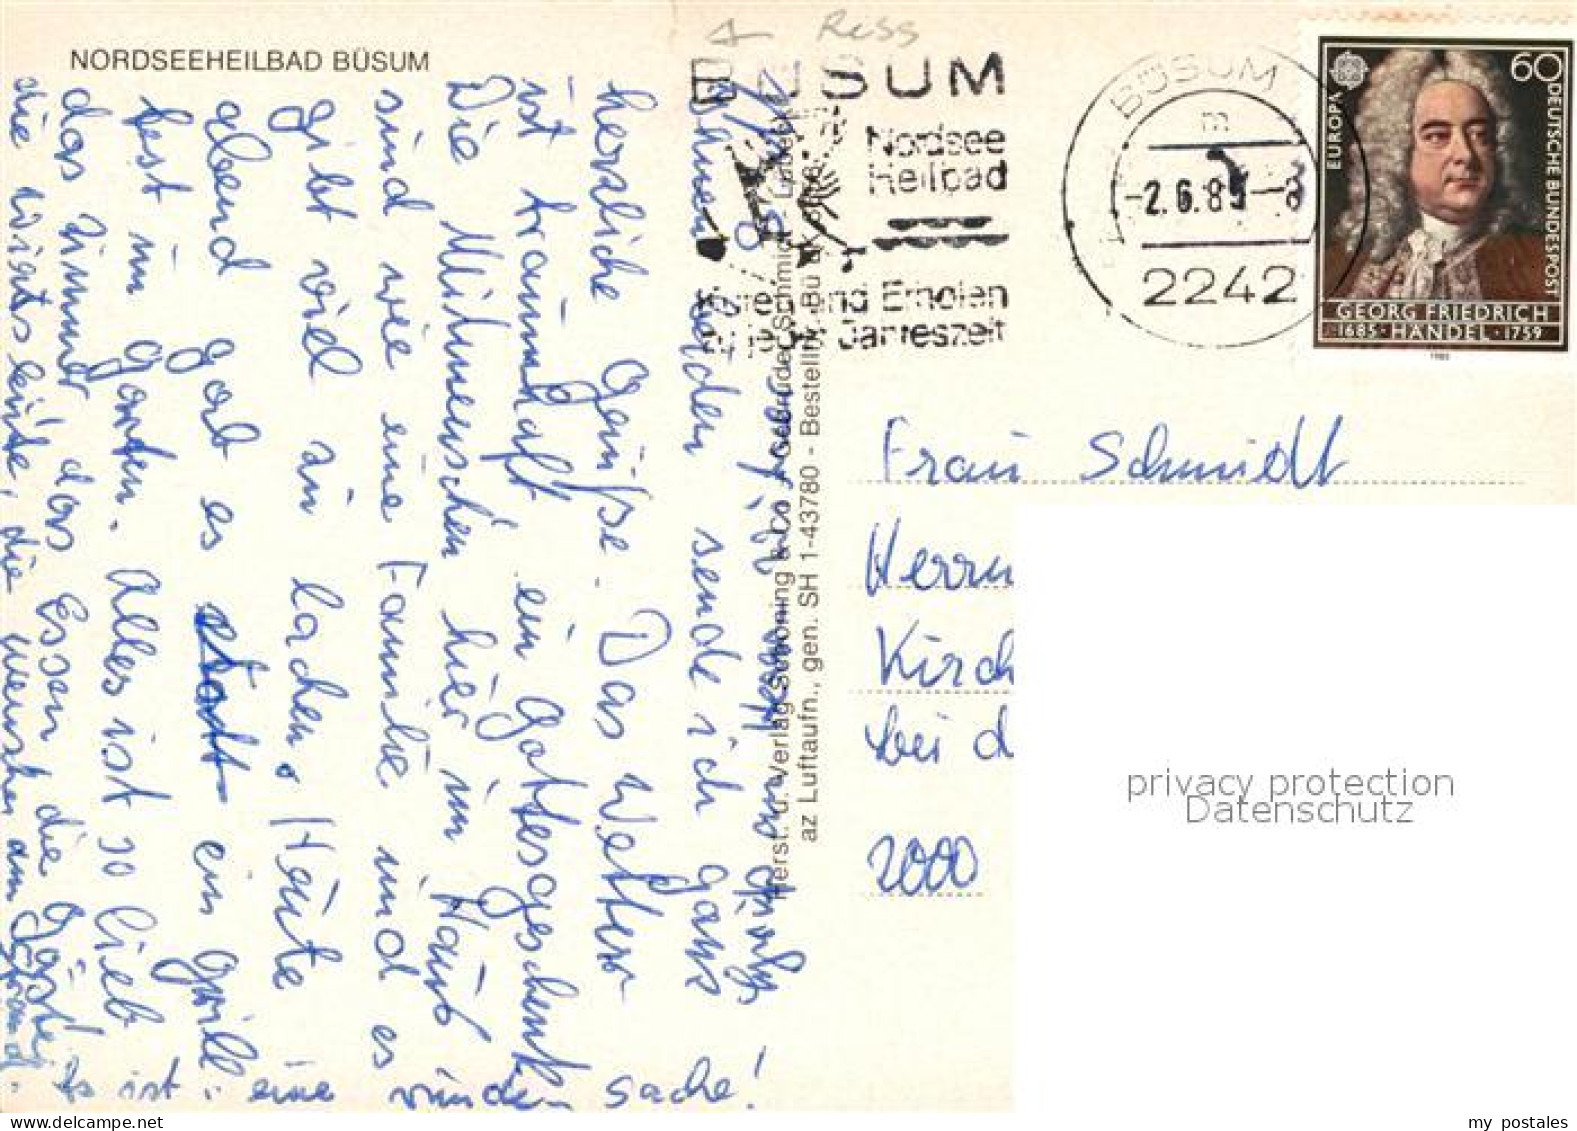 NORDSEEHEILBAD BÜSUM
Ress
BÜSUM
Nordsee
Heilbad
Kuren und Erholen
zu jeder Jahreszeit
BÜSUM
m
-2.6.85-8
2242
60
EUROPA
DEUTSCHE BUNDESPOST
GEORG FRIEDRICH
1685·HÄNDEL·1759
1985
Ihnen beiden sende ich ganz
herzliche Grüße. Das Wetter
ist traumhaft ein Gottesgeschenk
Die Mitmenschen hier im Haus
sind wie eine Familie und es
gibt viel zu lachen. Heute
abend gab es statt ein Grill-
fest im Garten. Alles ist so lieb
das Zimmer das Essen die Gäste,
die Wirtsleute, die Menschen am Strand.
Es ist eine runde Sache!
Herst. u. Verlag Schöning & Co + Gebrüder Schmidt - Lübeck
az Luftaufn., gen. SH 1-43780 - Bestellnr. Bü
Frau Schmidt
Herrn
Kirch
bei d
2000
privacy protection
Datenschutz
my postales